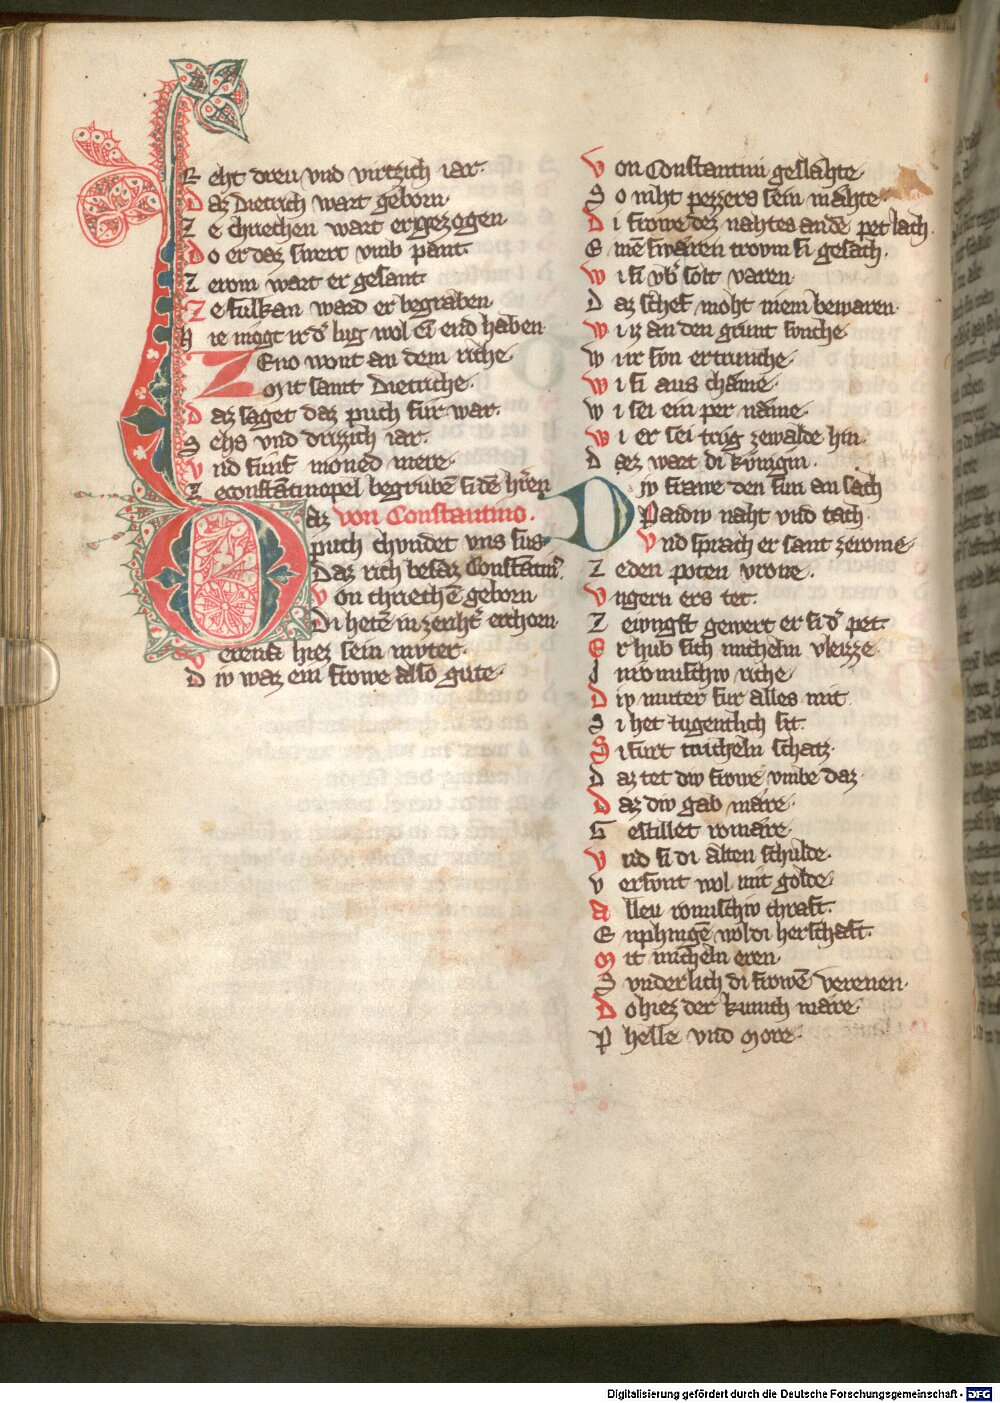 Reht dreu vnd virtzich iar.
Daz Dietrich wart geborn.
Ze chriechen wart er gezogen
Do er daz swert vmb pant.
Ze rom wart er gesant
Ze fulkan ward er begraben.
Hie mögt ir d' lug wol ein end haben
Zeno wont an dem riche
Mit samt Dietriche.
Daz saget daz puch fur war.
Sehs vnd drizzich iar.
Vnd funf moned mere.
Ze constātinopel begrubē si dē h'ren
Daz von Constantino.
puch chvndet vns sus
Daz rich besaz Constātin9.
Von chriechē geborn.
Di hetē in ze riht' erchorn.
Verena hiez sein mvter.
Div waz ein frowe also gute.
Von Constantini geslähte
So niht pezzers sein mähte
Di frowe dez nahtes an dē pet lach.
Einē swären trovm si gesach.
Wi si vb' solt varen.
Daz schef moht niem bewaren.
Wi iz an den grunt sunche
Wi ir son ertrunche.
Wi si aus chäme.
Wi sei ein per näme.
Wi er sei trüg ze walde hin.
Daez wart di künigin.
Div frawe den sun an sach
Paidiv naht vnd tach
Vnd sprach er sant zerome
Zeden poten vrone.
Vngern ers tet.
Ze ivngst gewert er si d' pet
Er hub sich micheln vleizze
In römischiv riche
Div muter fur alles mit
Si het tugentlich sit.
Si furt micheln schatz.
Daz tet div frowe vmbe daz
Daz div gab märe.
Gestillet romäre.
Vnd si di alten schulde.
Versvnt wol mit golde
Alleu romischiv chraft.
Enphingē wol di herschaft.
Mit micheln eren.
Svnderlich di frowē verenen.
Do hiez der kunich märe.
Phelle vnd More.
Digitalisierung gefördert durch die Deutsche Forschungsgemeinschaft - DFG